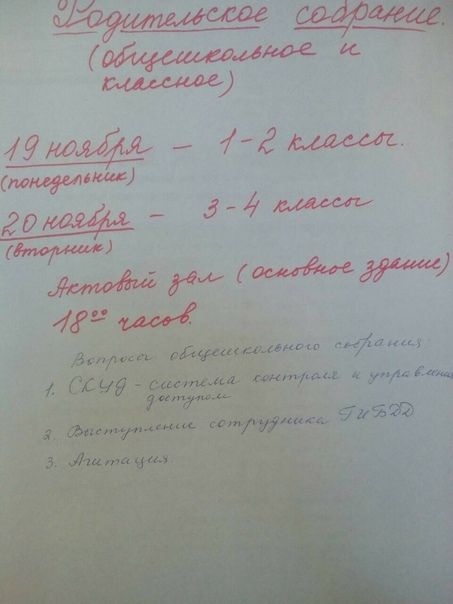 Родительское собрание.
(общешкольное и
классное)
19 ноября – 1-2 классы.
(понедельник)
20 ноября – 3-4 классы
(вторник)
Актовый зал (основное здание)
18⁰⁰ часов.
Вопросы общешкольного собрания
1. СКУД - система контроля и управления
доступом
2. Выступление сотрудника ГИБДД
3. Агитация.